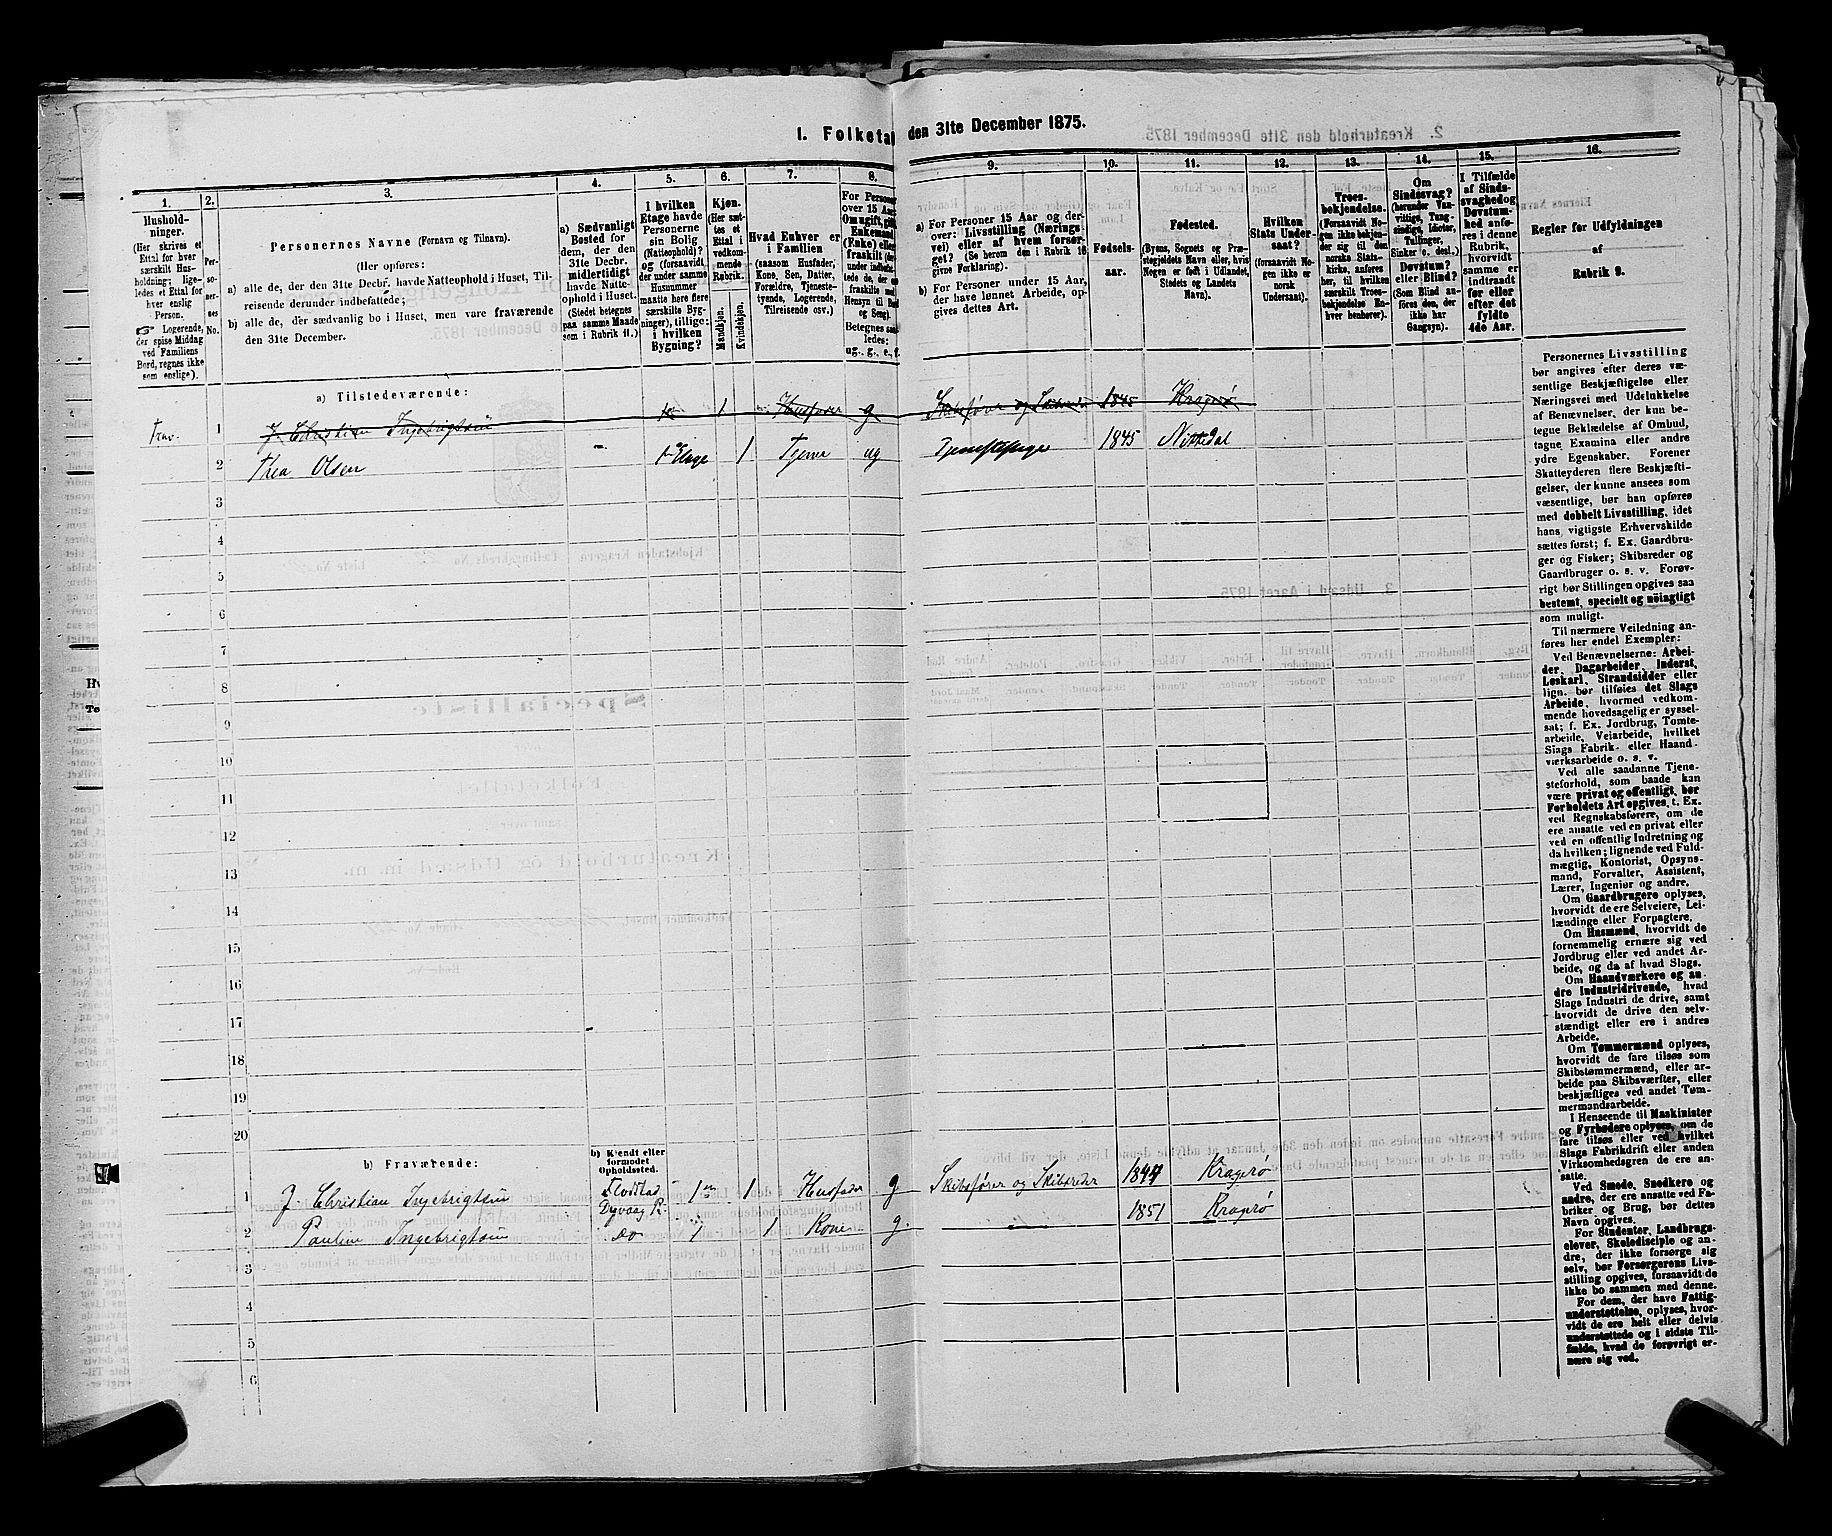 1. Folketal den 31te December 1875.
1.
Hushold-
ninger.
(Her skrives et
Ettal for hver
særskilt Hus-
holdning; lige-
ledes et Ettal for
hver enslig
Person.
☞ Logerende,
der spise Middag
ved Familiens
Bord, regnes ikke
som enslige).
2.
Per-
so-
ner-
nes
No.
3.
Personernes Navne (Fornavn og Tilnavn).
(Her opføres:
a) alle de, der den 31te Decbr. havde Natteophold i Huset, Til-
reisende derunder indbefattede;
b) alle de, der sædvanlig bo i Huset, men vare fraværende
den 31te December.
4.
a) Sædvanligt
Bosted for
dem, der den
31te Decbr.
midlertidigt
havde Natte-
ophold i Huset.
(Stedet betegnes
paa samme Maade
som i Rubrik 11.)
5.
I hvilken
Etage havde
Personerne
sin Bolig
(Natteophold)?
og (forsaavidt
der under samme
Husnummer
maatte høre flere
særskilte Byg-
ninger), tillige:
i hvilken
Bygning?
6.
Kjøn.
(Her sæt-
tes et
Ettal i
vedkom-
mende
Rubrik.
Mandkjøn.
Kvindekjøn.
7.
Hvad Enhver er
i Familien
(saasom Husfader,
Kone, Søn, Datter,
Forældre, Tjeneste-
tyende, Logerende,
Tilreisende osv.)
8.
For Personer
over 15 Aar:
Om ugift, gift,
Enkemand
(Enke) eller
fraskilt
Betegnes saa-
ledes:
ug., g., e., f.
9.
a) For Personer 15 Aar og der-
over: Livsstilling (Nærings-
vei) eller af hvem forsør-
get? (Se herom den i Rubrik 16
givne Forklaring).
b) For Personer under 15 Aar,
der have lønnet Arbeide, op-
gives dettes Art.
10.
Fødsels-
aar.
11.
Fødested.
(Byens, Sognets og Præ-
stegjeldets Navn eller, hvis
Nogen er født i Udlandet,
Stedets og Landets
Navn).
12.
Hvilken
Stats Under-
saat?
(forsaavidt No-
gen ikke er
norsk
Undersaat).
13.
Troes-
bekjendelse.
(Forsaavidt No-
gen ikke bekjen-
der sig til den
norske Stats-
kirke, anføres
her, til hvilken
særskilt Troes-
bekjendelse En-
hver henhører).
14.
Om
Sindssvag?
(herunder Van-
vittige, Tung-
sindige, Idioter,
Tullinger,
Sinker o. desl.)
Døvstum?
eller Blind?
(Som Blind an-
føres den, der
ikke har
Gangsyn).
15.
I Tilfælde
af Sinds-
svaghed og
Døvstum-
hed anfø-
res i denne
Rubrik,
hvorvidt
samme er
indtraadt
før eller
efter det
fyldte
4de Aar.
16.
Regler for Udfyldningen
af
Rubrik 9.
a) Tilstedeværende:
1 J. Christian Ingebrigtsen 1 Husfader g Skibsfører og 1845 Kragerø
2 Thea Olsen - 1 Etage 1 Tjener ug 1845 Nittedal
3
4
5
6
7
8
9
10
11
12
13
14
15
16
17
18
19
20
b) Fraværende:
b) Kjendt eller
formodet
Opholdssted.
1 J Christian Ingebrigtsen Dyvaag 1 1 Husfader g Skibsfører og Skibsreder 1844 Kragerø
2 Pauline Ingebrigtsen do 1 1 Kone g. 1851 Kragerø
3
4
5
6
Personernes Livsstilling
bør angives efter deres væ-
sentlige Beskjæftigelse eller
Næringsvei med Udelukkelse
af Benævnelser, der kun be-
tegne Beklædelse af Ombud,
tagne Examina eller andre
ydre Egenskaber. Forener
Skatteyderen flere Beskjæfti-
gelser, der kunne ansees som
væsentlige, bør han opføres
med dobbelt Livsstilling, idet
hans vigtigste Erhvervskilde
sættes først; f. Ex. Gaardbru-
ger og Fisker; Skibsreder og
Gaardbruger o. s. v. Forøv-
rigt bør Stillingen opgives saa
bestemt, specielt og nøiagtigt
som muligt.
Til nærmere Veiledning an-
føres her endel Exempler:
Ved Benævnelserne: Arbei-
der, Dagarbeider, Inderst,
Løskarl, Strandsidder eller
lign. bør tilføies det Slags
Arbeide, hvormed vedkom-
mende hovedsagelig er syssel-
sat; f. Ex. Jordbrug, Tomte-
arbeide, Veiarbeide, hvilket
Slags Fabrik- eller Haand-
værksarbeide o. s. v.
Ved alle saadanne Tjene-
steforhold, som baade kan
være privat og offentligt, bør
Forholdets Art opgives, t. Ex.
ved Regnskabsførere, om de
ere ansatte ved en privat eller
ved en offentlig Indretning og
da hvilken; lignende ved Fuld-
mægtig, Kontorist, Opsyns-
mand, Forvalter, Assistent,
Lærer, Ingeniør og andre.
Om Gaardbrugere oplyses,
hvorvidt de ere Selveiere, Lei-
lændinge eller Forpagtere.
Om Husmænd, hvorvidt de
fornemmelig ernære sig ved
Jordbrug eller ved andet Ar-
beide, og da af hvad Slags.
Om Haandværkere og an-
dre Industridrivende, hvad
Slags Industri de drive, samt
hvorvidt de drive den selv-
stændigt eller ere i andres
Arbeide.
Om Tømmermænd oplyses,
hvorvidt de fare tilsøs som
Skibstømmermænd, eller ar-
beide paa Skibsværfter, eller
beskjæftiges ved andet Tøm-
mermandsarbeide.
I Henseende til Maskinister
og Fyrbødere oplyses, om de
fare tilsøs eller ved hvilket
Slags Fabrikdrift eller anden
Virksomhedsgren de ere an-
satte.
Ved Smede, Snedkere og
andre, der ere ansatte ved Fa-
briker og Brug, bør dettes
Navn opgives.
For Studenter, Landbrugs-
elever, Skoledisciple og an-
dre, der ikke forsørge sig
selv, bør Forsørgerens Livs-
stilling opgives, forsaavidt de
ikke bo sammen med denne.
For dem, der have Fattig-
understøttelse, oplyses, hvor-
vidt de ere helt eller delvis
understøttede og i sidste Til-
fælde, hvad de forøvrigt er-
nære sig ved.